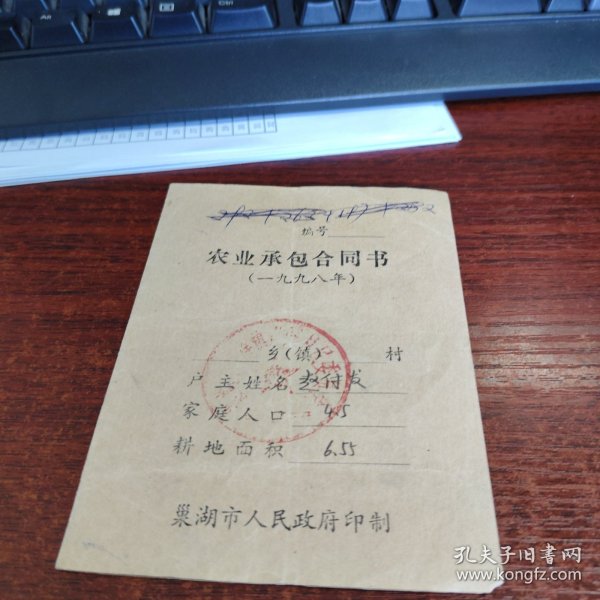 编号
农业承包合同书
（一九九八年）
乡（镇） 村
户主姓名 赵付发
家庭人口 4.5
耕地面积 6.55
巢湖市人民政府印制
孔夫子旧书网
www.kongfz.com